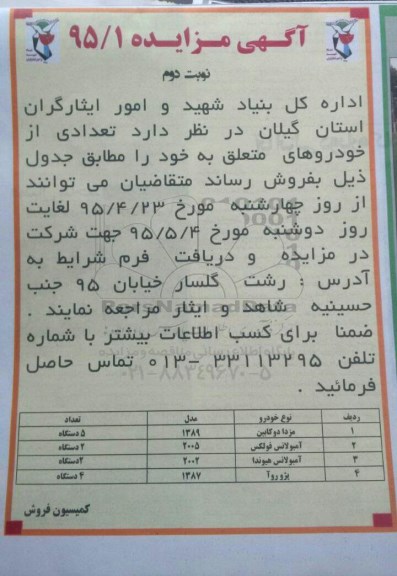 آگهی مزایده ۹۵/۱
نوبت دوم
اداره کل بنیاد شهید و امور ایثارگران
استان گیلان در نظر دارد تعدادی از
خودروهای متعلق به خود را مطابق جدول
ذیل بفروش رساند متقاضیان می توانند
از روز چهارشنبه مورخ ۹۵/۴/۲۳ لغایت
روز دوشنبه مورخ ۹۵/۵/۴ جهت شرکت
در مزایده و دریافت فرم شرایط به
آدرس : رشت گلسار خیابان ۹۵ جنب
حسینیه شاهد و ایثار مراجعه نمایند .
ضمنا برای کسب اطلاعات بیشتر با شماره
تلفن ۳۳۱۱۳۲۹۵ –۰۱۳ تماس حاصل
فرمائید .
ردیف نوع خودرو مدل تعداد
۱ مزدا دوکابین ۱۳۸۹ ۵ دستگاه
۲ آمبولانس فولکس ۲۰۰۵ ۲ دستگاه
۳ آمبولانس هیوندا ۲۰۰۲ ۲دستگاه
۴ پژو روآ ۱۳۸۷ ۴ دستگاه
کمیسیون فروش
۰۲۱-۸۸۳۴۹۶۷۰-۵